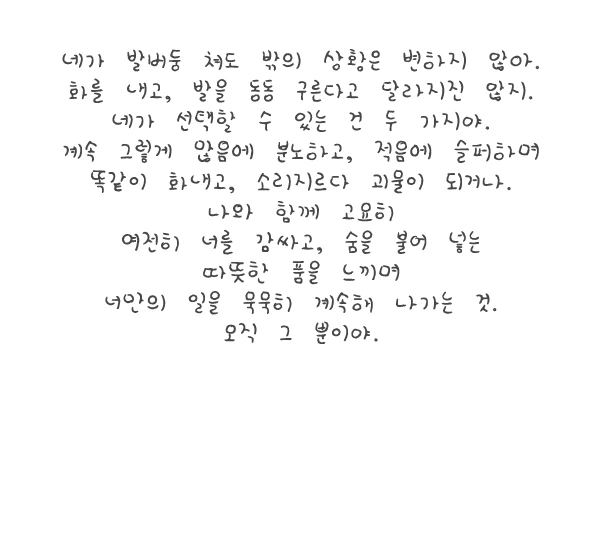 네가 발버둥 쳐도 밖의 상황은 변하지 않아.
화를 내고, 발을 동동 구른다고 달라지진 않지.
네가 선택할 수 있는 건 두 가지야.
계속 그렇게 많음에 분노하고, 적음에 슬퍼하며
똑같이 화내고, 소리지르다 괴물이 되거나.
나와 함께 고요히
여전히 너를 감싸고, 숨을 불어 넣는
따뜻한 품을 느끼며
너만의 일을 묵묵히 계속해 나가는 것.
오직 그 뿐이야.